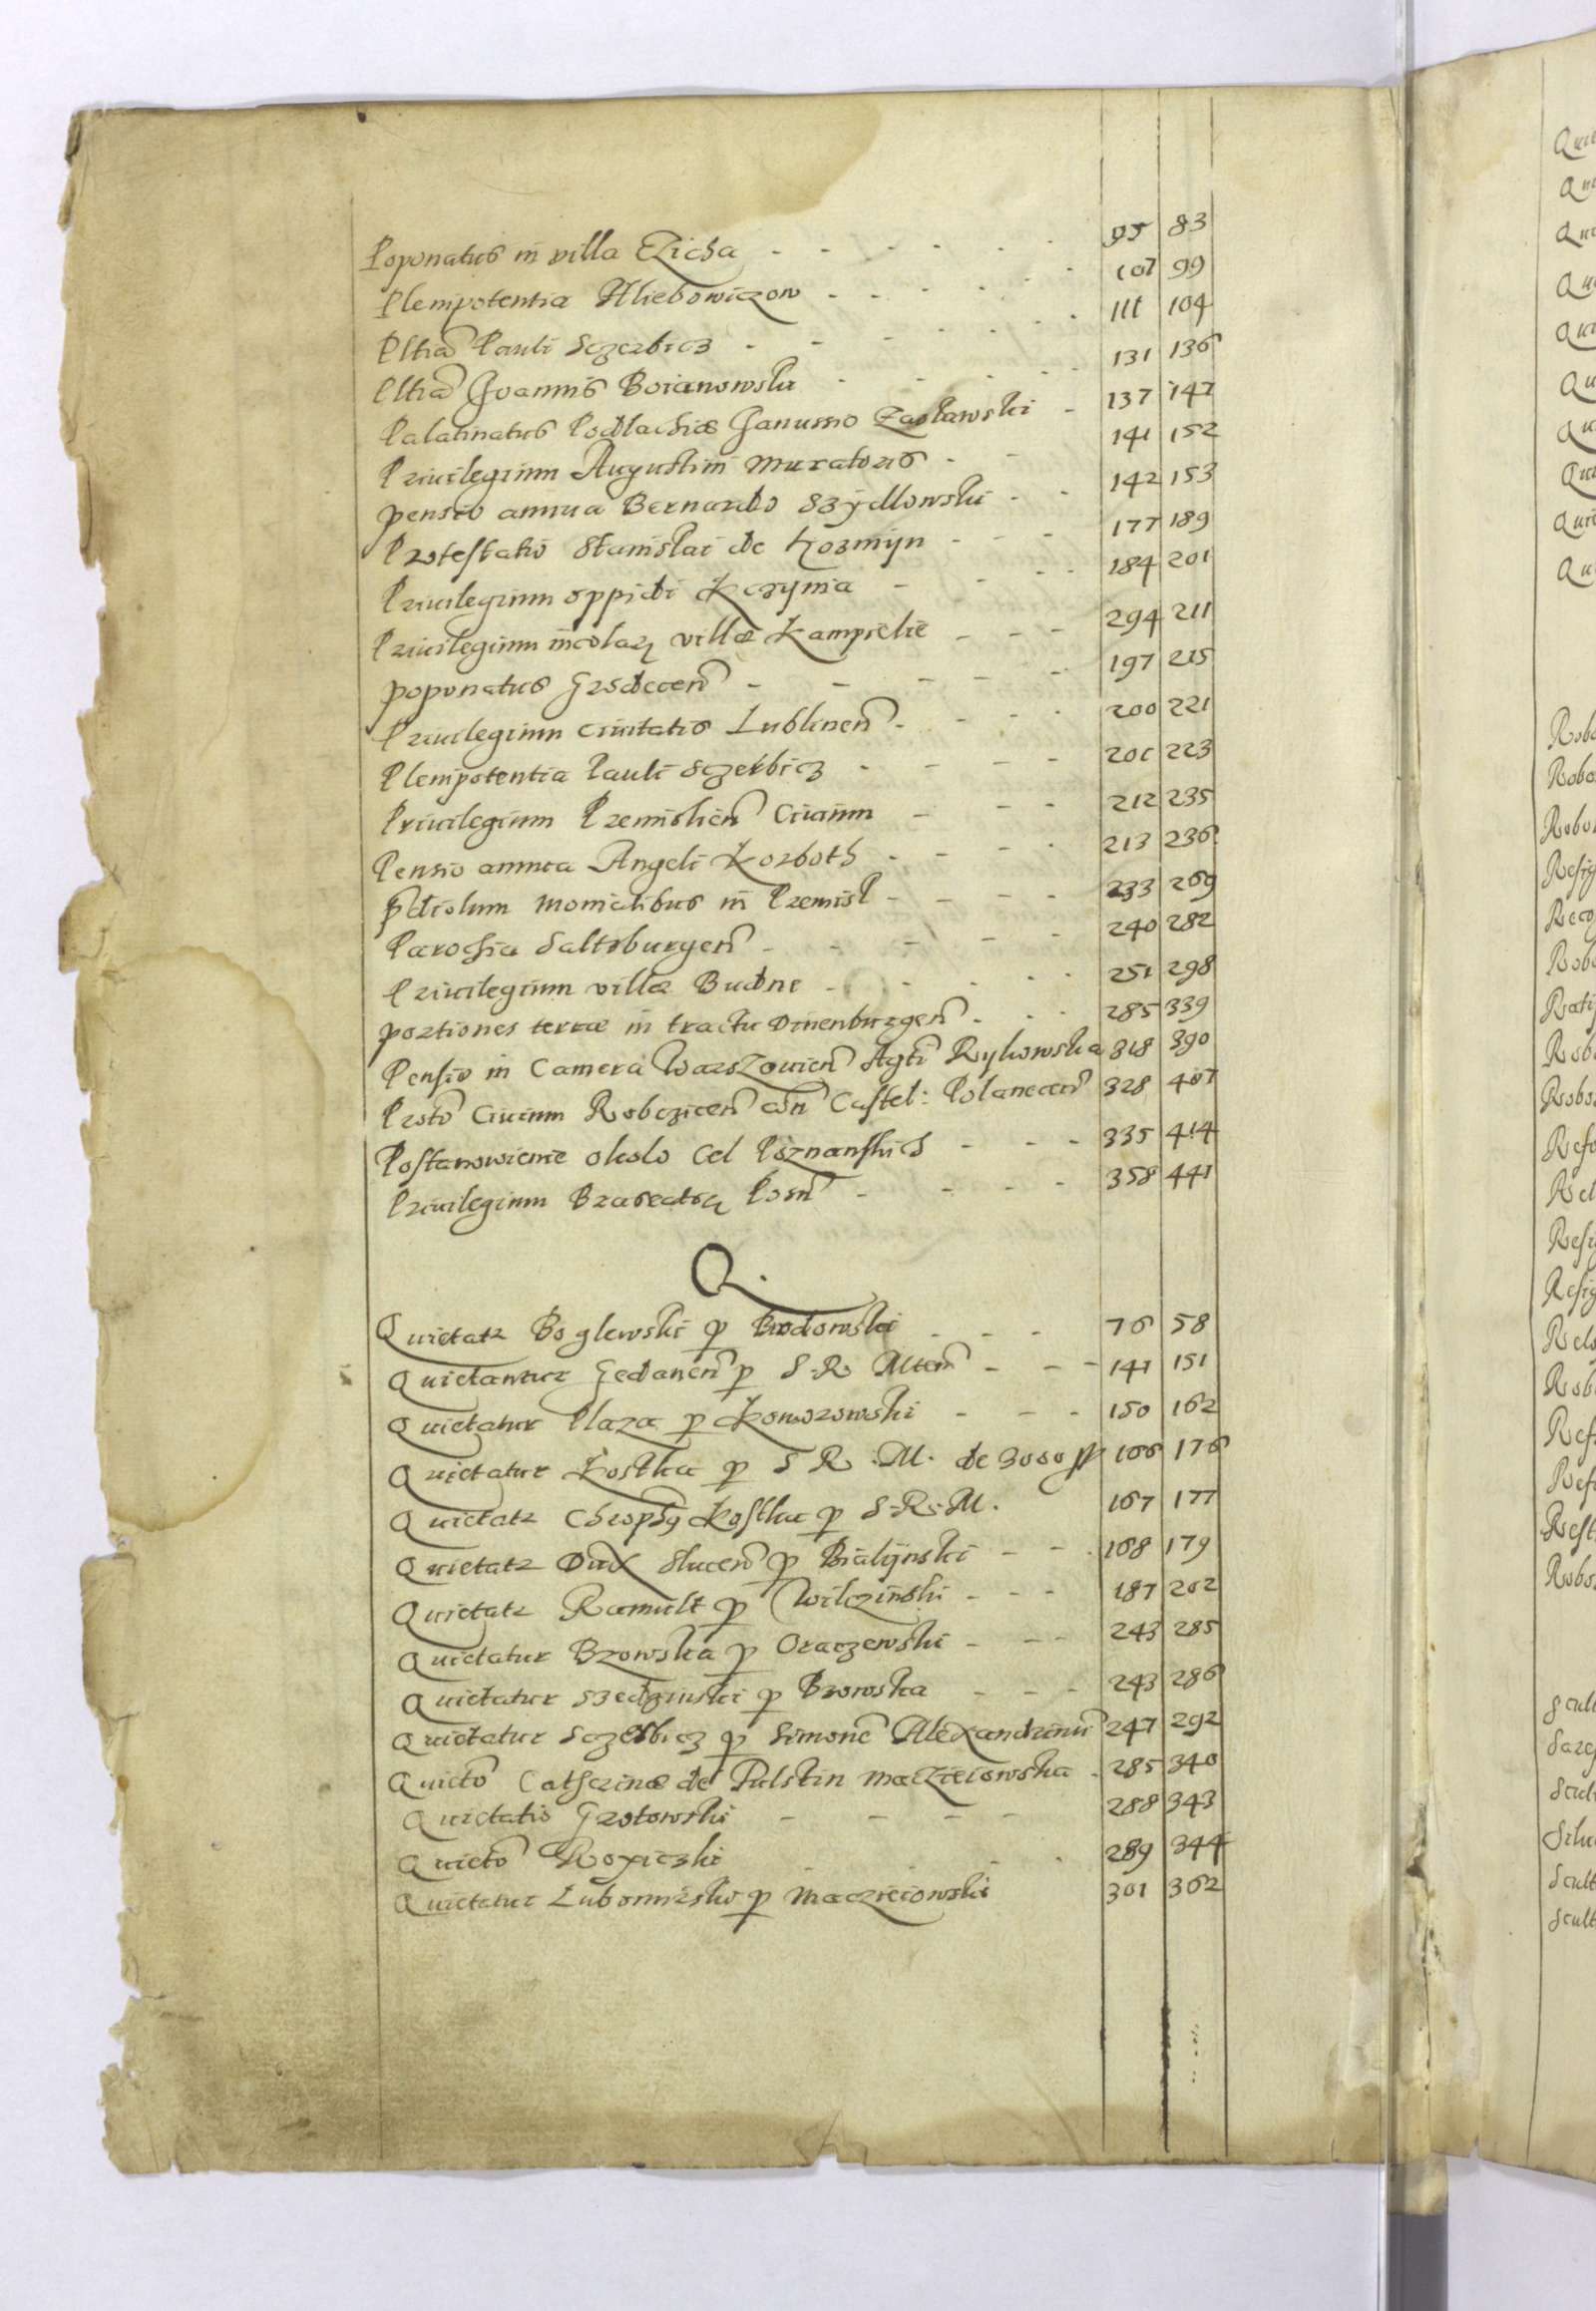 Poponatus in villa Czicha - - - - - - 95 83
Plenipotentia Hliebowiczow - - - - - - 107 99
Pltia Pauli Sczerbicz - - - - - - 111 104
Pltia Joannis Boianowski - - - - - 131 136
Palatinatus Podlachiæ Janussio Zaslawski - 137 147
Privilegium Augustini Muratoris - - 141 152
Pensio annua Bernardo Szydlowski - - 142 153
Protestatio Stanislai de Kozmijn - - - 177 189
Privilegium oppidi Kcrynia - - - - 184 201
Privilegium incolaꝝ villæ Kampielie - - - 294 211
Poponatus Grodecen - - - - - 197 215
Privilegium Civitatis Lublinen - - - - 200 221
Plenipotentia Pauli Sczerbicz - - - - 201 223
Privilegium Premislien Civium - - - 212 235
Pensio annua Angeli Korboth - - - - 213 236
Pdiolum monialibus in Premisl - - - - 233 269
Parochia Saltsburgen - - - - - 240 282
Privilegium villæ Budne - - - - - 251 298
Portiones terræ in tractu Dinenburgen - - - 285 339
Pensio in Camera Warszovien Agti Rykowska 318 390
Proto Civium Robczicen con Castel: Polanecen 328 407
Postanowienie okolo Cel Poznanskich - - - 335 414
Privilegium Braseatoꝝ Posn - - - - 358 441
Q.
Quietatr Boglewski ꝑ Brodowski - - - 76 58
Quietantur Gedanen ꝑ S. R. Mtem - - - 141 151
Quietatur Plaza ꝑ Komorowski - - - 150 162
Quietatur Kostka ꝑ S R. M. de 3000 166 176
Quietatr Chrophg Kostka ꝑ S. R. M. 167 177
Quietatr Dux Slucen ꝑ Bialijnski - - . 168 179
Quietatr Ramult ꝑ Wilczinski - - - 187 202
Quietatur Brzowska ꝑ Oraczewski - - - 243 285
Quietatur Szedzinski ꝑ Brzowska - - - 243 286
Quietatur Sczerbicz ꝑ Simone Alexandrinu 247 292
Quieto Catherinæ de Pulstin Maczieiowska . 285 340
Quietatio Grotowski - - - - 288 343
Quieto - - - . 289 344
Quietatur Lubomirski ꝑ Maczieiowski 301 362